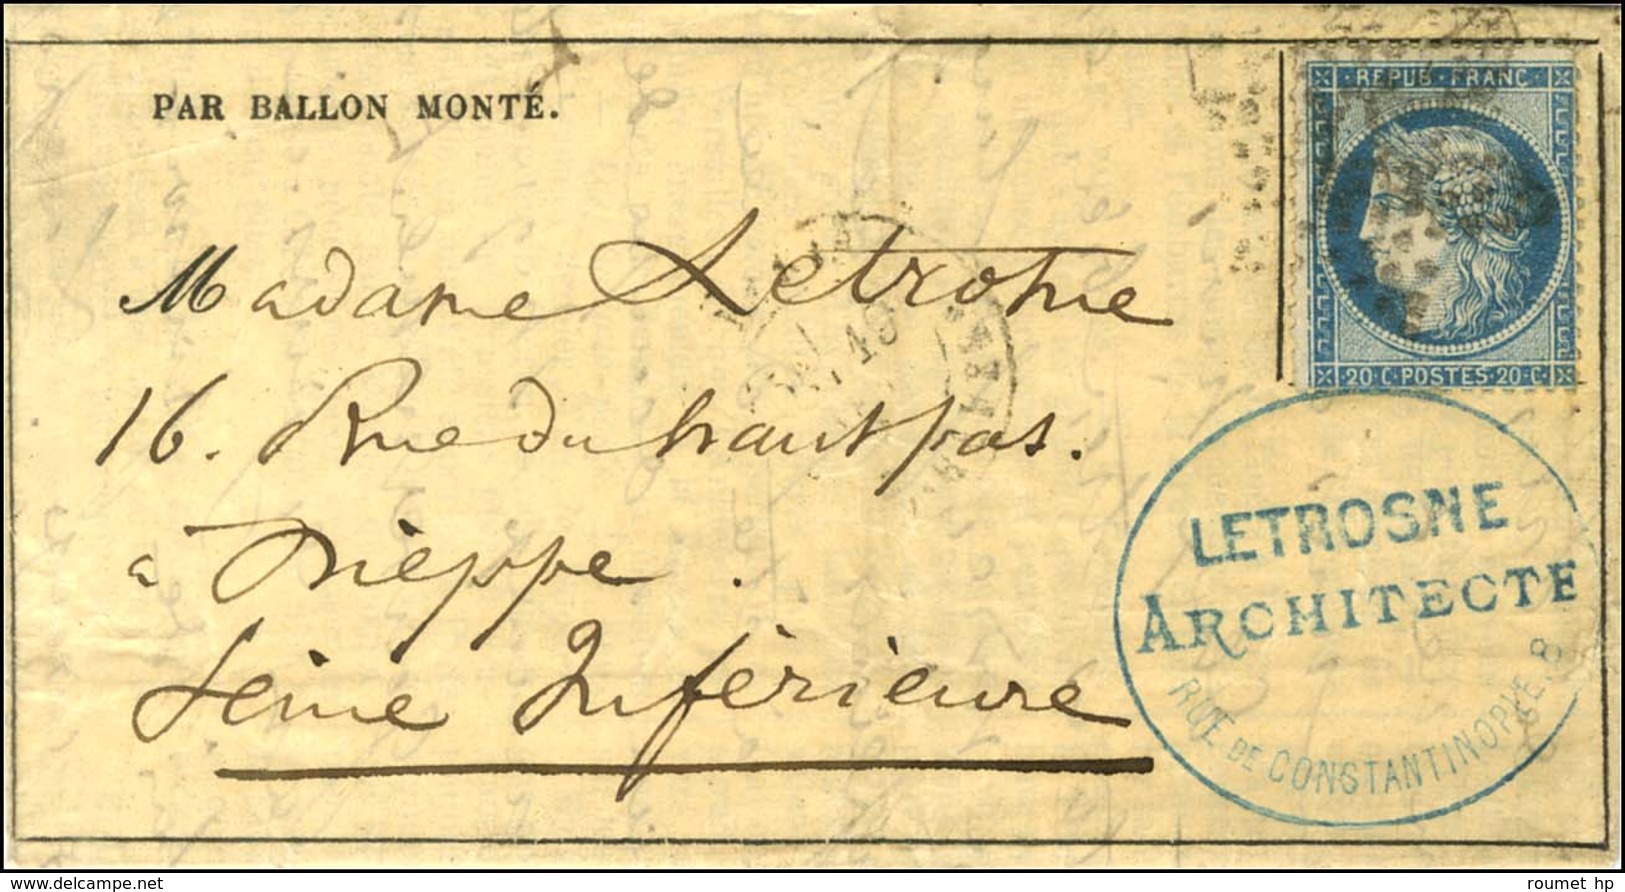 PAR BALLON MONTÉ.
REPUB. FRANC.
20 C. POSTES 20 C.
Madame Letrosne
16. Rue du haut pas.
à Dieppe.
Seine Inférieure
LETROSNE
ARCHITECTE
RUE DE CONSTANTINOPLE, 8
roumet hp